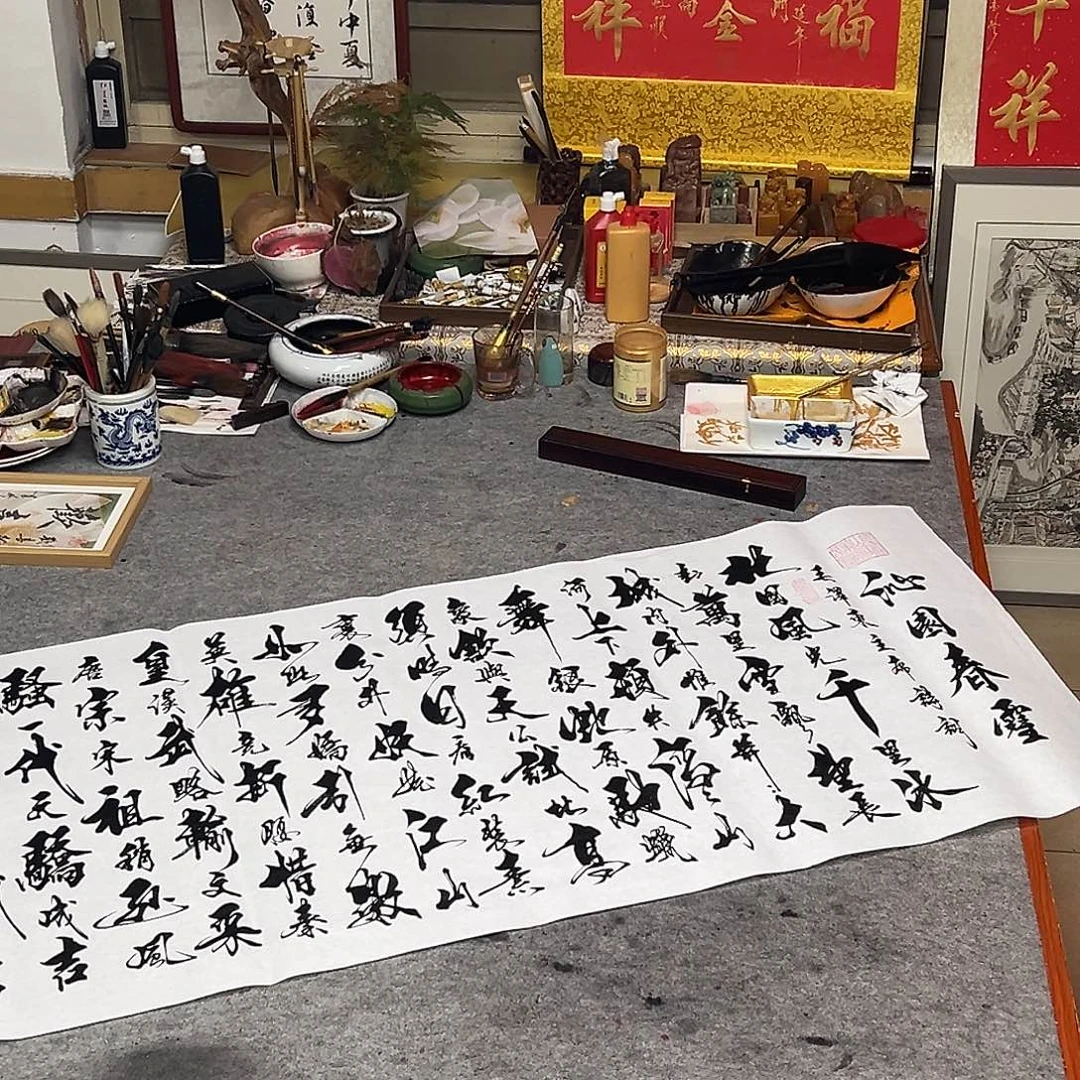 沁園春雪
毛澤東主席詩詞
北國風光千里冰
封萬里雪飄望長
城内外惟餘莽莽大
河上下頓失滔滔山
舞銀蛇原馳蠟
象欲與天公試比高
須晴日看紅裝素
裹分外妖嬈江山
如此多嬌引無數
英雄競折腰惜秦
皇漢武略輸文采
唐宗宋祖稍遜風
騷一代天驕成吉
福
金
祥
祥
中夏